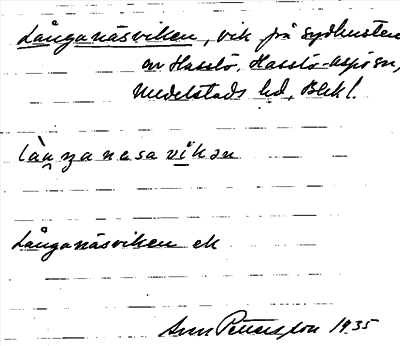 Långanäsviken, vik på sydkusten
av Hasslö, Hasslö-Aspö sn,
Medelstads hd, Blek l.
långanäsviken ek
Sven Pettersson 1935